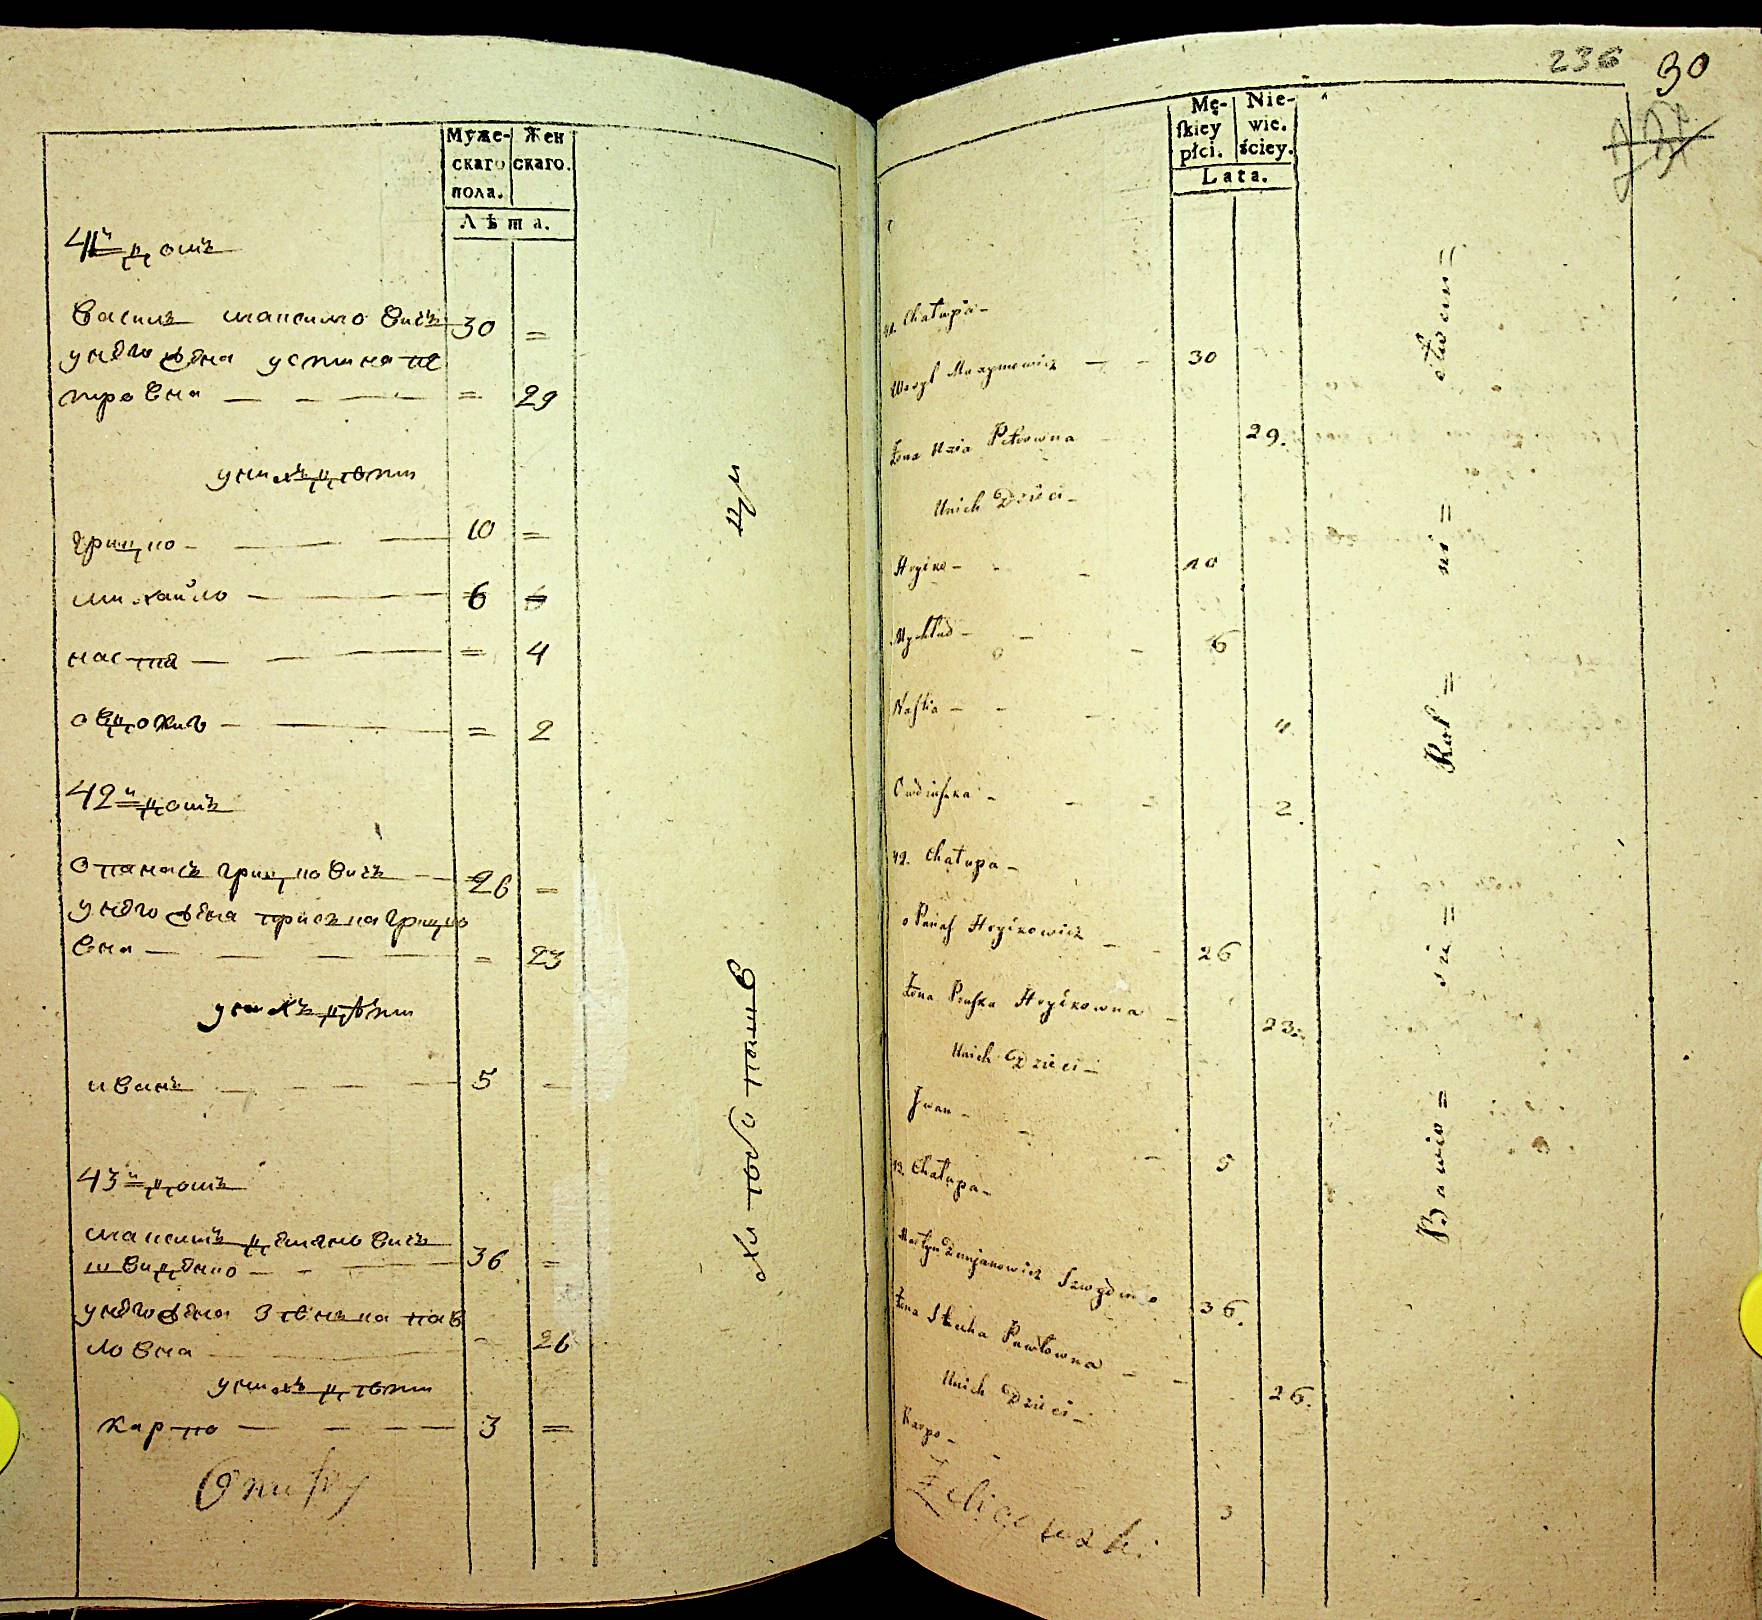 Муже- Жен
скаго скаго.
пола.
Лѣта.
41й домъ
Василь Максимовичъ 30 =
унего жена устина пе
тровна — — — = 29
унихъ дѣти
Грицко — — — 10 =
михайло — — 6
настя — — — = 4
овдокия — — = 2
42й домъ
опанасъ грицковичъ — 26 =
унего женаприська Грицко
вна — — — — = 23
унихъ дѣти
иванъ — — — 5 —
43й домъ
максимъ демяновичъ
швидкио — — — 36 =
унего жена зѣнька пав
ловна — — 26
унихъ дѣти
карпо — — — 3 =
236 30
Mę- Nie-
skiey wie.
płci. ściey.
Lata.
41. Chałupa —
Wasyl Maxymowicz — — 30
Żona Uzia Petrowna 29.
Unich Dzieci —
Hryćko — — — 10
Mychład — — — 6
Nastia — — — 4
Owdiuszka — — — 2.
42. Chałupa —
oPanas Hryćkowicz — — 26
Żona Pruska Hryćkowna — 23.
Unich Dzieci —
Jwan — — — 5
43. Chałupa —
Martyn Damjanowicz Szwydenko 36.
Żona Stecha Pawłowna — — 26.
Unich Dzieci —
Karpo — — 3
Żeligowski.